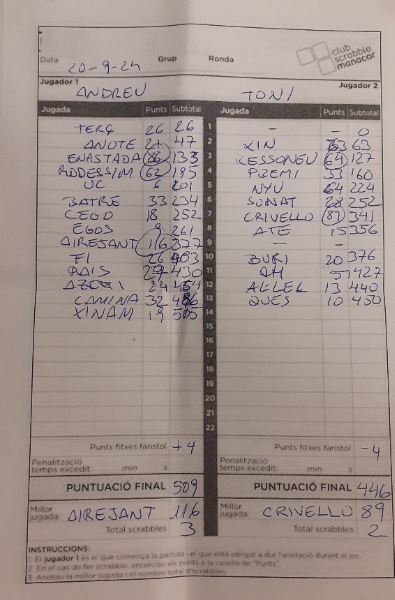 club
scrabble
manacor
Data 20-9-24 Grup Ronda
Jugador 1 Jugador 2
ANDREU TONI
Jugada Punts Subtotal Jugada Punts Subtotal
TERÇ 26 26 1 - - 0
ANOTE 21 47 2 XIN 63 63
ENASTADA 86 133 3 RESSONEU 64 127
62 195 4 PREMI 33 160
UC 6 201 5 NYU 64 224
BATRE 33 234 6 SONAT 28 252
CEGO 18 252 7 CRIVELLO 89 341
EGOS 9 261 8 ATE 15 356
AIREJANT 116 377 9 - -
FI 26 403 10 BURI 20 376
PAIS 27 430 11 AH 51 427
24 454 12 AL·LEL 13 440
CAMINA 32 486 13 QUES 10 450
XINAM 19 505 14
15
16
17
18
19
20
21
22
Punts fitxes faristol +4 Punts fitxes faristol -4
Penalització
temps excedit min s
Penalització
temps excedit min s
PUNTUACIÓ FINAL 509 PUNTUACIÓ FINAL 446
Millor
jugada: AIREJANT 116
Millor
jugada: CRIVELLO 89
Total scrabbles 3 Total scrabbles 2
INSTRUCCIONS:
1. El jugador 1 és el que comença la partida i el que està obligat a dur l'anotació durant el joc.
2. En el cas de fer scrabble, encercleu els punts a la casella de "Punts".
3. Anotau la millor jugada i el nombre total d'scrabbles.